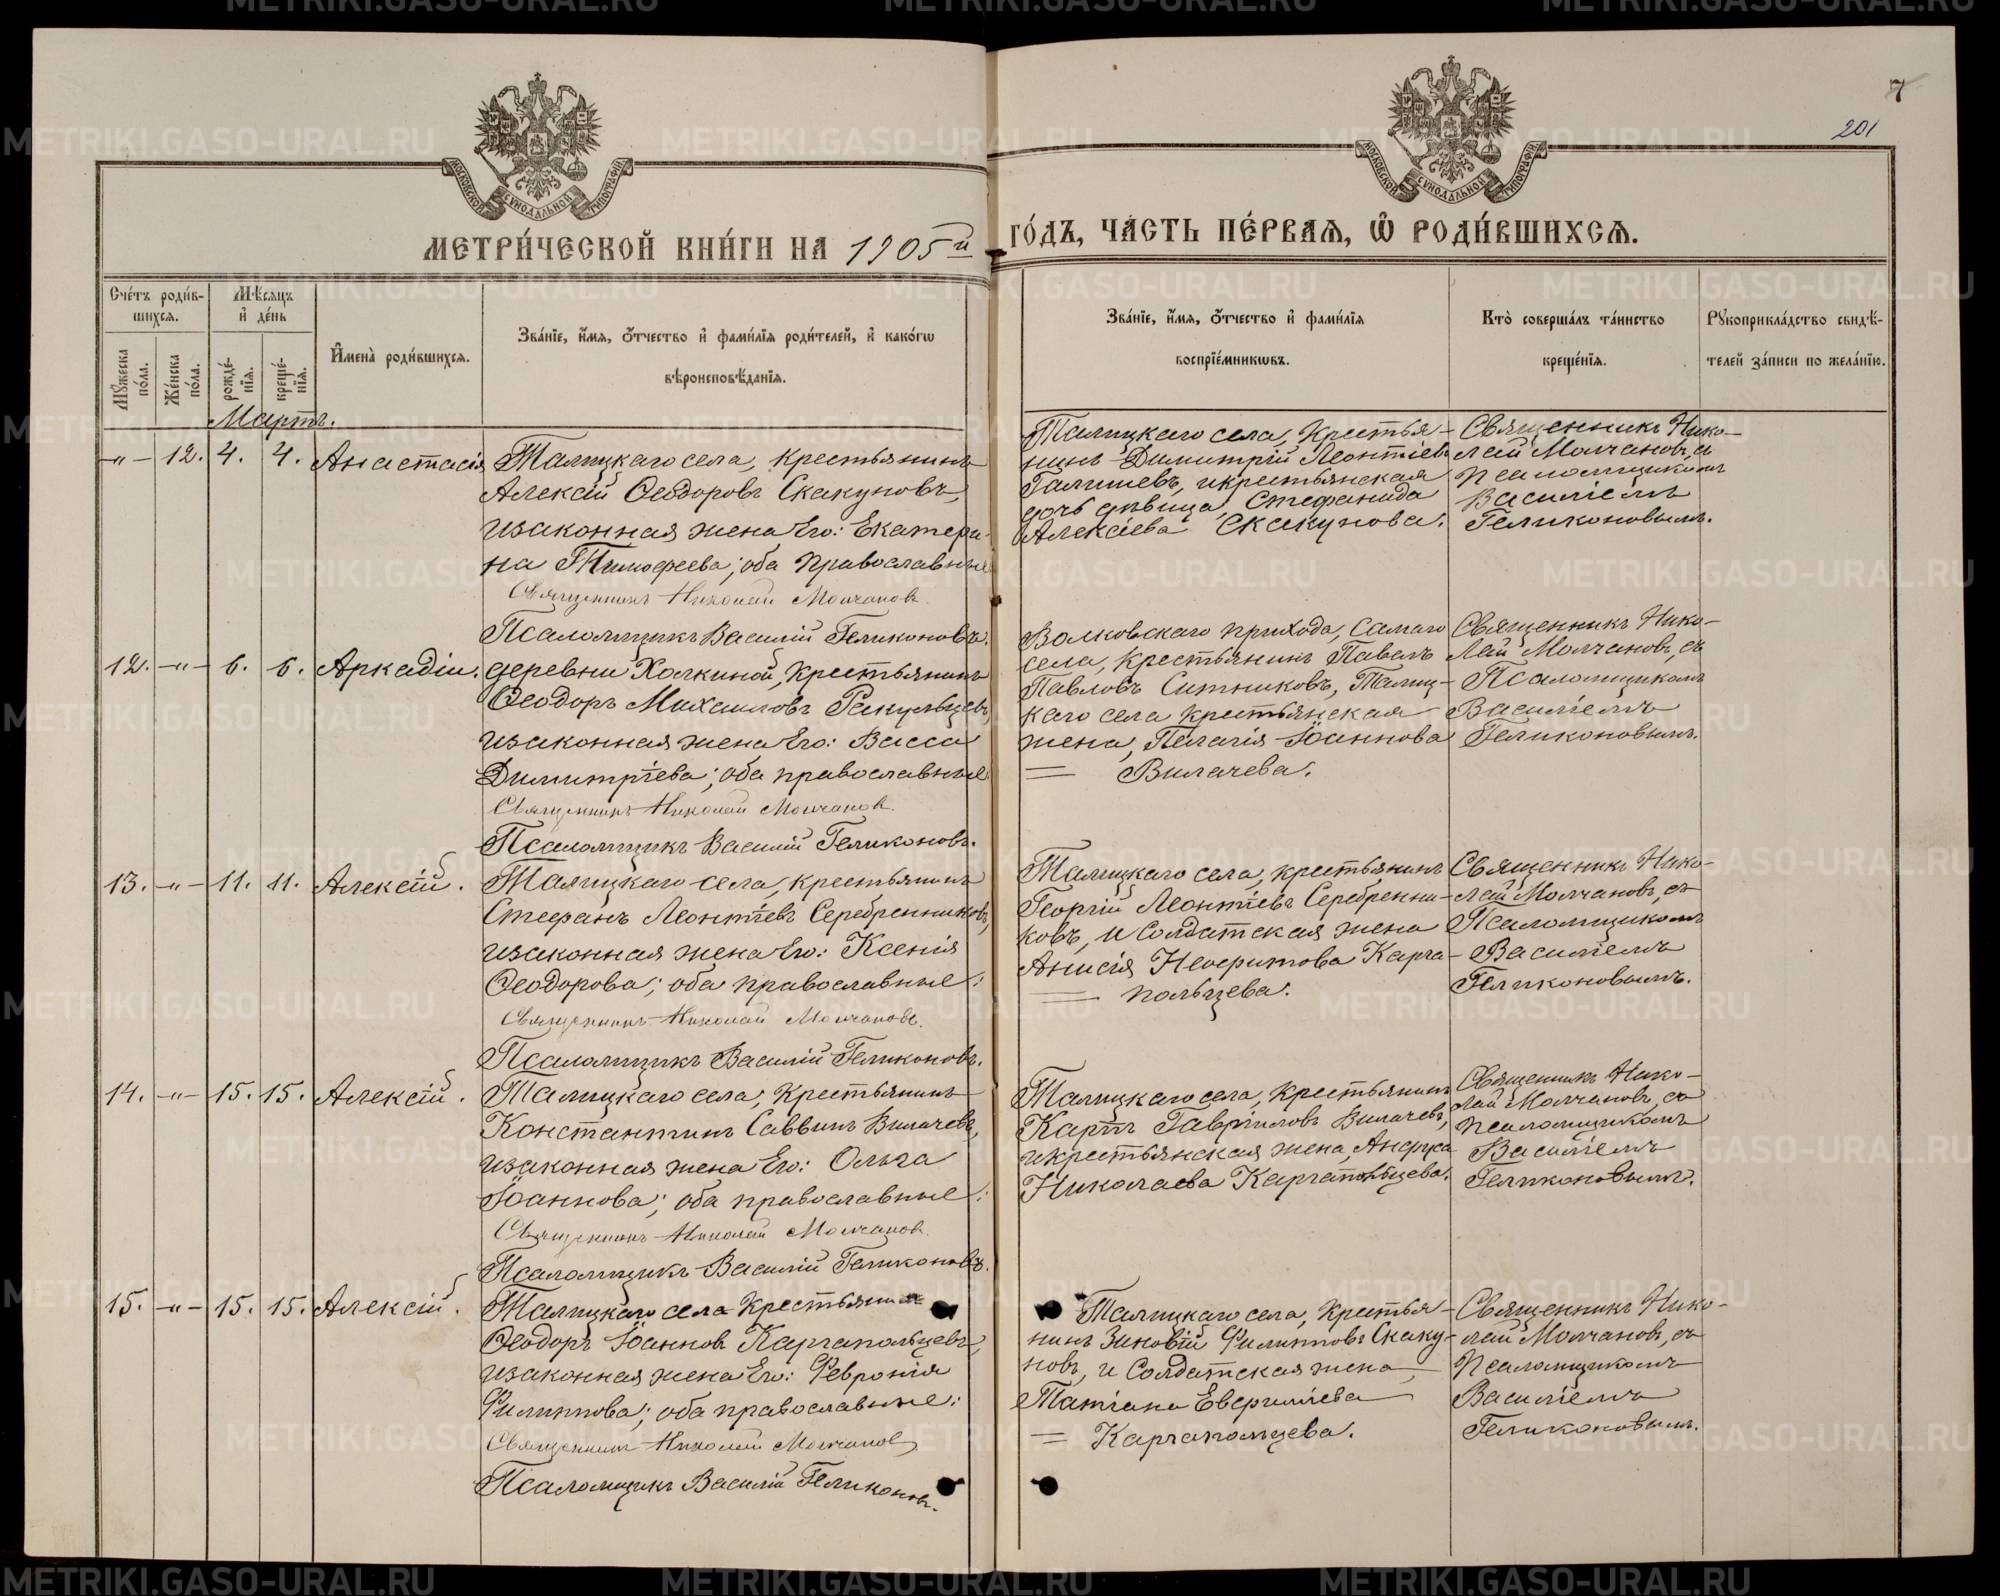 7
201
МОСКОВСКОЙ СѴНОДАЛЬНОЙ ТИПОГРАФІИ
МОСКОВСКОЙ СѴНОДАЛЬНОЙ ТИПОГРАФІИ
МЕТРИ́ЧЕСКОЙ КНИ́ГИ НА 1905й ГО́ДЪ, ЧА́СТЬ ПЕ́РВАЯ, Ѡ҆ РОДИ́ВШИХСѦ.
Сче́тъ роди́в-
шихсѧ.
Мꙋ́жеска по́ла.
Же́нска по́ла.
Мѣ́сѧцъ
и҆ де́нь
рожде́-
нїѧ.
креще́-
нїѧ.
И҆мена̀ роди́вшихсѧ.
Зва́нїе, и҆́мѧ, ѻ҆́тчество и҆ фами́лїѧ роди́телей, и҆ како́гѡ
вѣроисповѣ́данїѧ.
Зва́нїе, и҆́мѧ, ѻ҆́тчество и҆ фами́лїѧ
воспрїе́мникѡвъ.
Кто̀ соверша́лъ та́инство
креще́нїѧ.
Рꙋкоприкла́дство свидѣ́-
телей за́писи по жела́нїю.
Мартъ.
-"- 12. 4. 4. Анастасія
Талицкаго села, крестьянинъ
Алексій Ѳеодоровъ Скакуновъ,
и законная жена Его: Екатери-
на Тимоѳеева; оба православные
Священникъ Николай Молчановъ.
Псаломщикъ Василій Геликоновъ.
Талицкаго села, Крестья-
нинъ Димитрій Леонтіевъ
Галишевъ, и крестьянская
дочь дѣвица, Стефанида
Алексіева Скакунова.
Священникъ Нико-
лай Молчановъ, съ
псаломщикомъ
Василіемъ
Геликоновымъ.
12. -"- 6. 6. Аркадіи.
деревни Холкиной, Крестьянинъ
Ѳеодоръ Михаиловъ Ракульцевъ,
и законная жена Его: Васса
Димитріева; оба православные
Священникъ Николай Молчановъ.
Псаломщикъ Василій Геликоновъ.
Волковскаго прихода, самаго
села, Крестьянинъ Павелъ
Павловъ Ситниковъ, Талиц-
каго села крестьянская
жена, Пелагія Іоаннова
= Вилачева.
Священникъ Нико-
лай Молчановъ, съ
Псаломщикомъ
Василіемъ
Геликоновымъ.
13. -"- 11. 11. Алексій.
Талицкаго села, крестьянинъ
Стефанъ Леонтіевъ Серебренниковъ,
и законная жена Его: Ксенія
Ѳеодорова; оба православные:
Священникъ Николай Молчановъ.
Псаломщикъ Василій Геликоновъ.
Талицкаго села, крестьянинъ
Георгій Леонтіевъ Серебренни-
ковъ, и Солдатская жена
Анисія Неофитова Карга-
= польцева.
Священникъ Нико-
лай Молчановъ, съ
Псаломщикомъ
Василіемъ
Геликоновымъ.
14. -"- 15. 15. Алексій.
Талицкаго села, Крестьянинъ
Константинъ Саввинъ Вилачевъ,
и законная жена Его: Ольга
Іоаннова; оба православные:
Священникъ Николай Молчановъ.
Псаломщикъ Василій Геликоновъ.
Талицкаго села, Крестьянинъ
Карпъ Гавріиловъ Вилачевъ,
и крестьянская жена,
Николаева Каргапольцева.
Священникъ Нико-
лай Молчановъ, съ
псаломщикомъ
Василіемъ
Геликоновымъ.
15. -"- 15. 15. Алексій.
Талицкаго села Крестьянинъ
Ѳеодоръ Іоанновъ Каргапольцевъ,
и законная жена Его: Февронія
Филиппова; оба православные:
Священникъ Николай Молчановъ
Псаломщикъ Василій Геликоновъ.
Талицкаго села, Крестья-
нинъ Зиновій Филипповъ Скаку-
новъ, и Солдатская жена,
Татіана Евфиміева
= Каргапольцева.
Священникъ Нико-
лай Молчановъ, съ
Псаломщикомъ
Василіемъ
Геликоновымъ.
METRIKI.GASO-URAL.RU